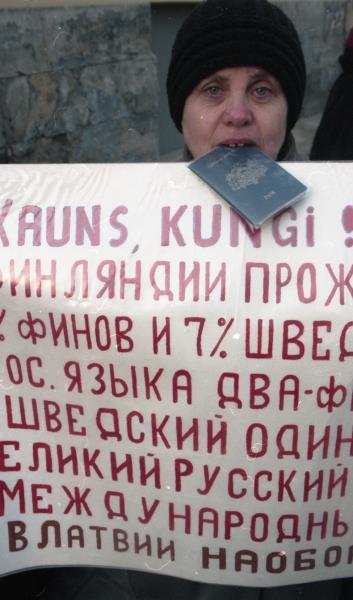 KAUNS, KUNGI !
ФИНЛЯНДИИ ПРОЖ
% ФИНОВ И 7% ШВЕД
ОС. ЯЗЫКА ДВА-Ф
ШВЕДСКИЙ ОДИН
ЕЛИКИЙ РУССКИЙ
МЕЖДУНАРОДНЫ
В ЛАТВИИ НАОБО